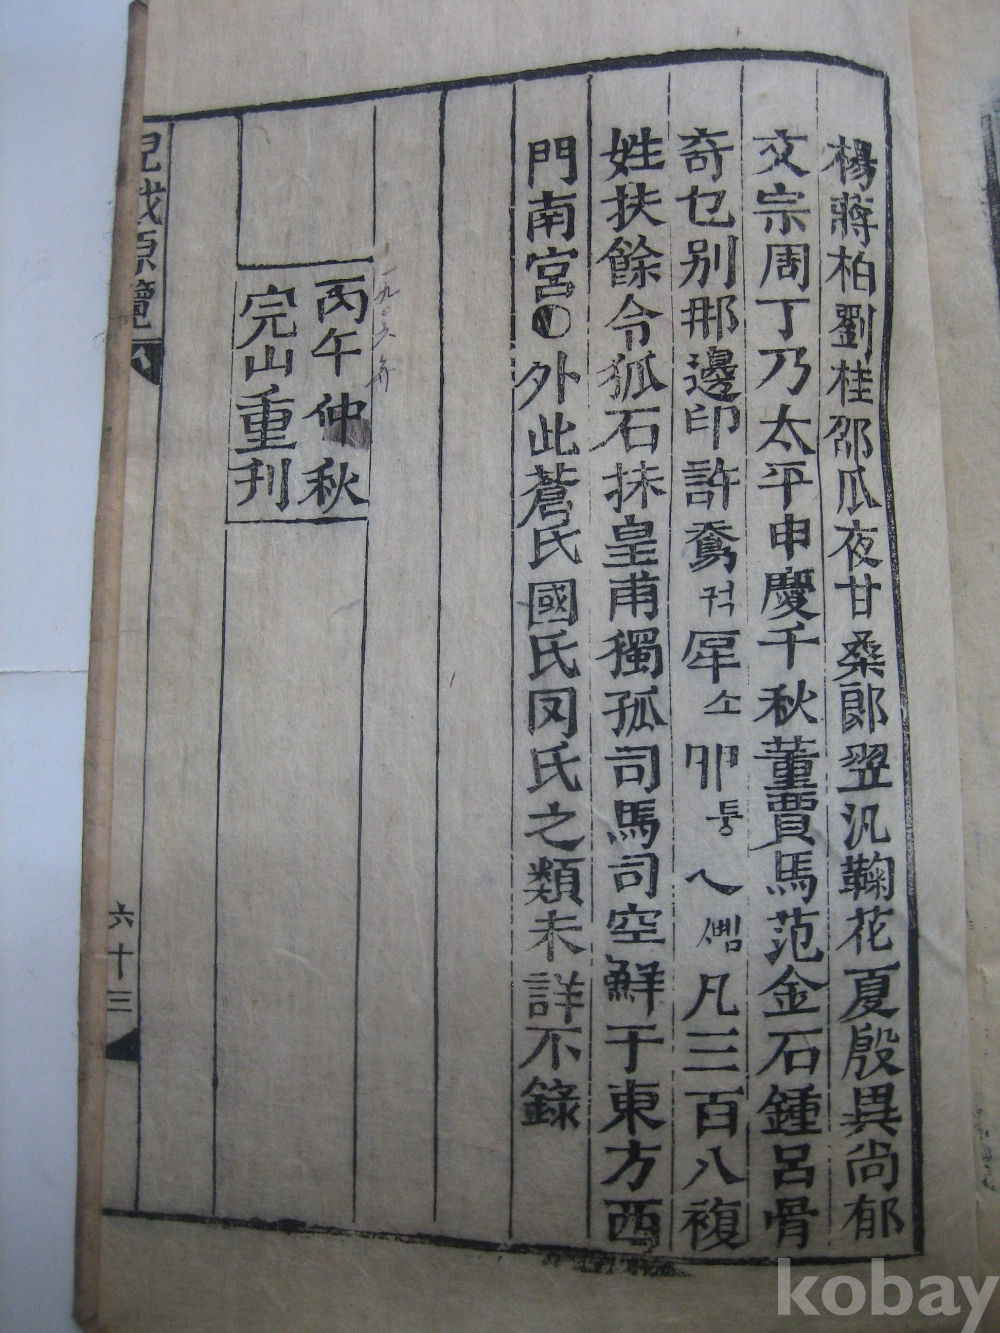 楊蔣柏劉桂邵瓜夜甘桑郎翌汎鞠花夏殷異尚郁
文宗周丁乃太平申慶千秋董賈馬范金石鍾呂骨
奇乜別那邊印許㚙걱𠪱소卵둥乀솀凡三百八複
姓扶餘令狐石抹皇甫獨孤司馬司空鮮于東方西
門南宮 外此蒼氏國氏罔氏之類未詳不錄
一九〇六年
丙午仲秋
完山重刊
兒戱原覽
六十三
kobay